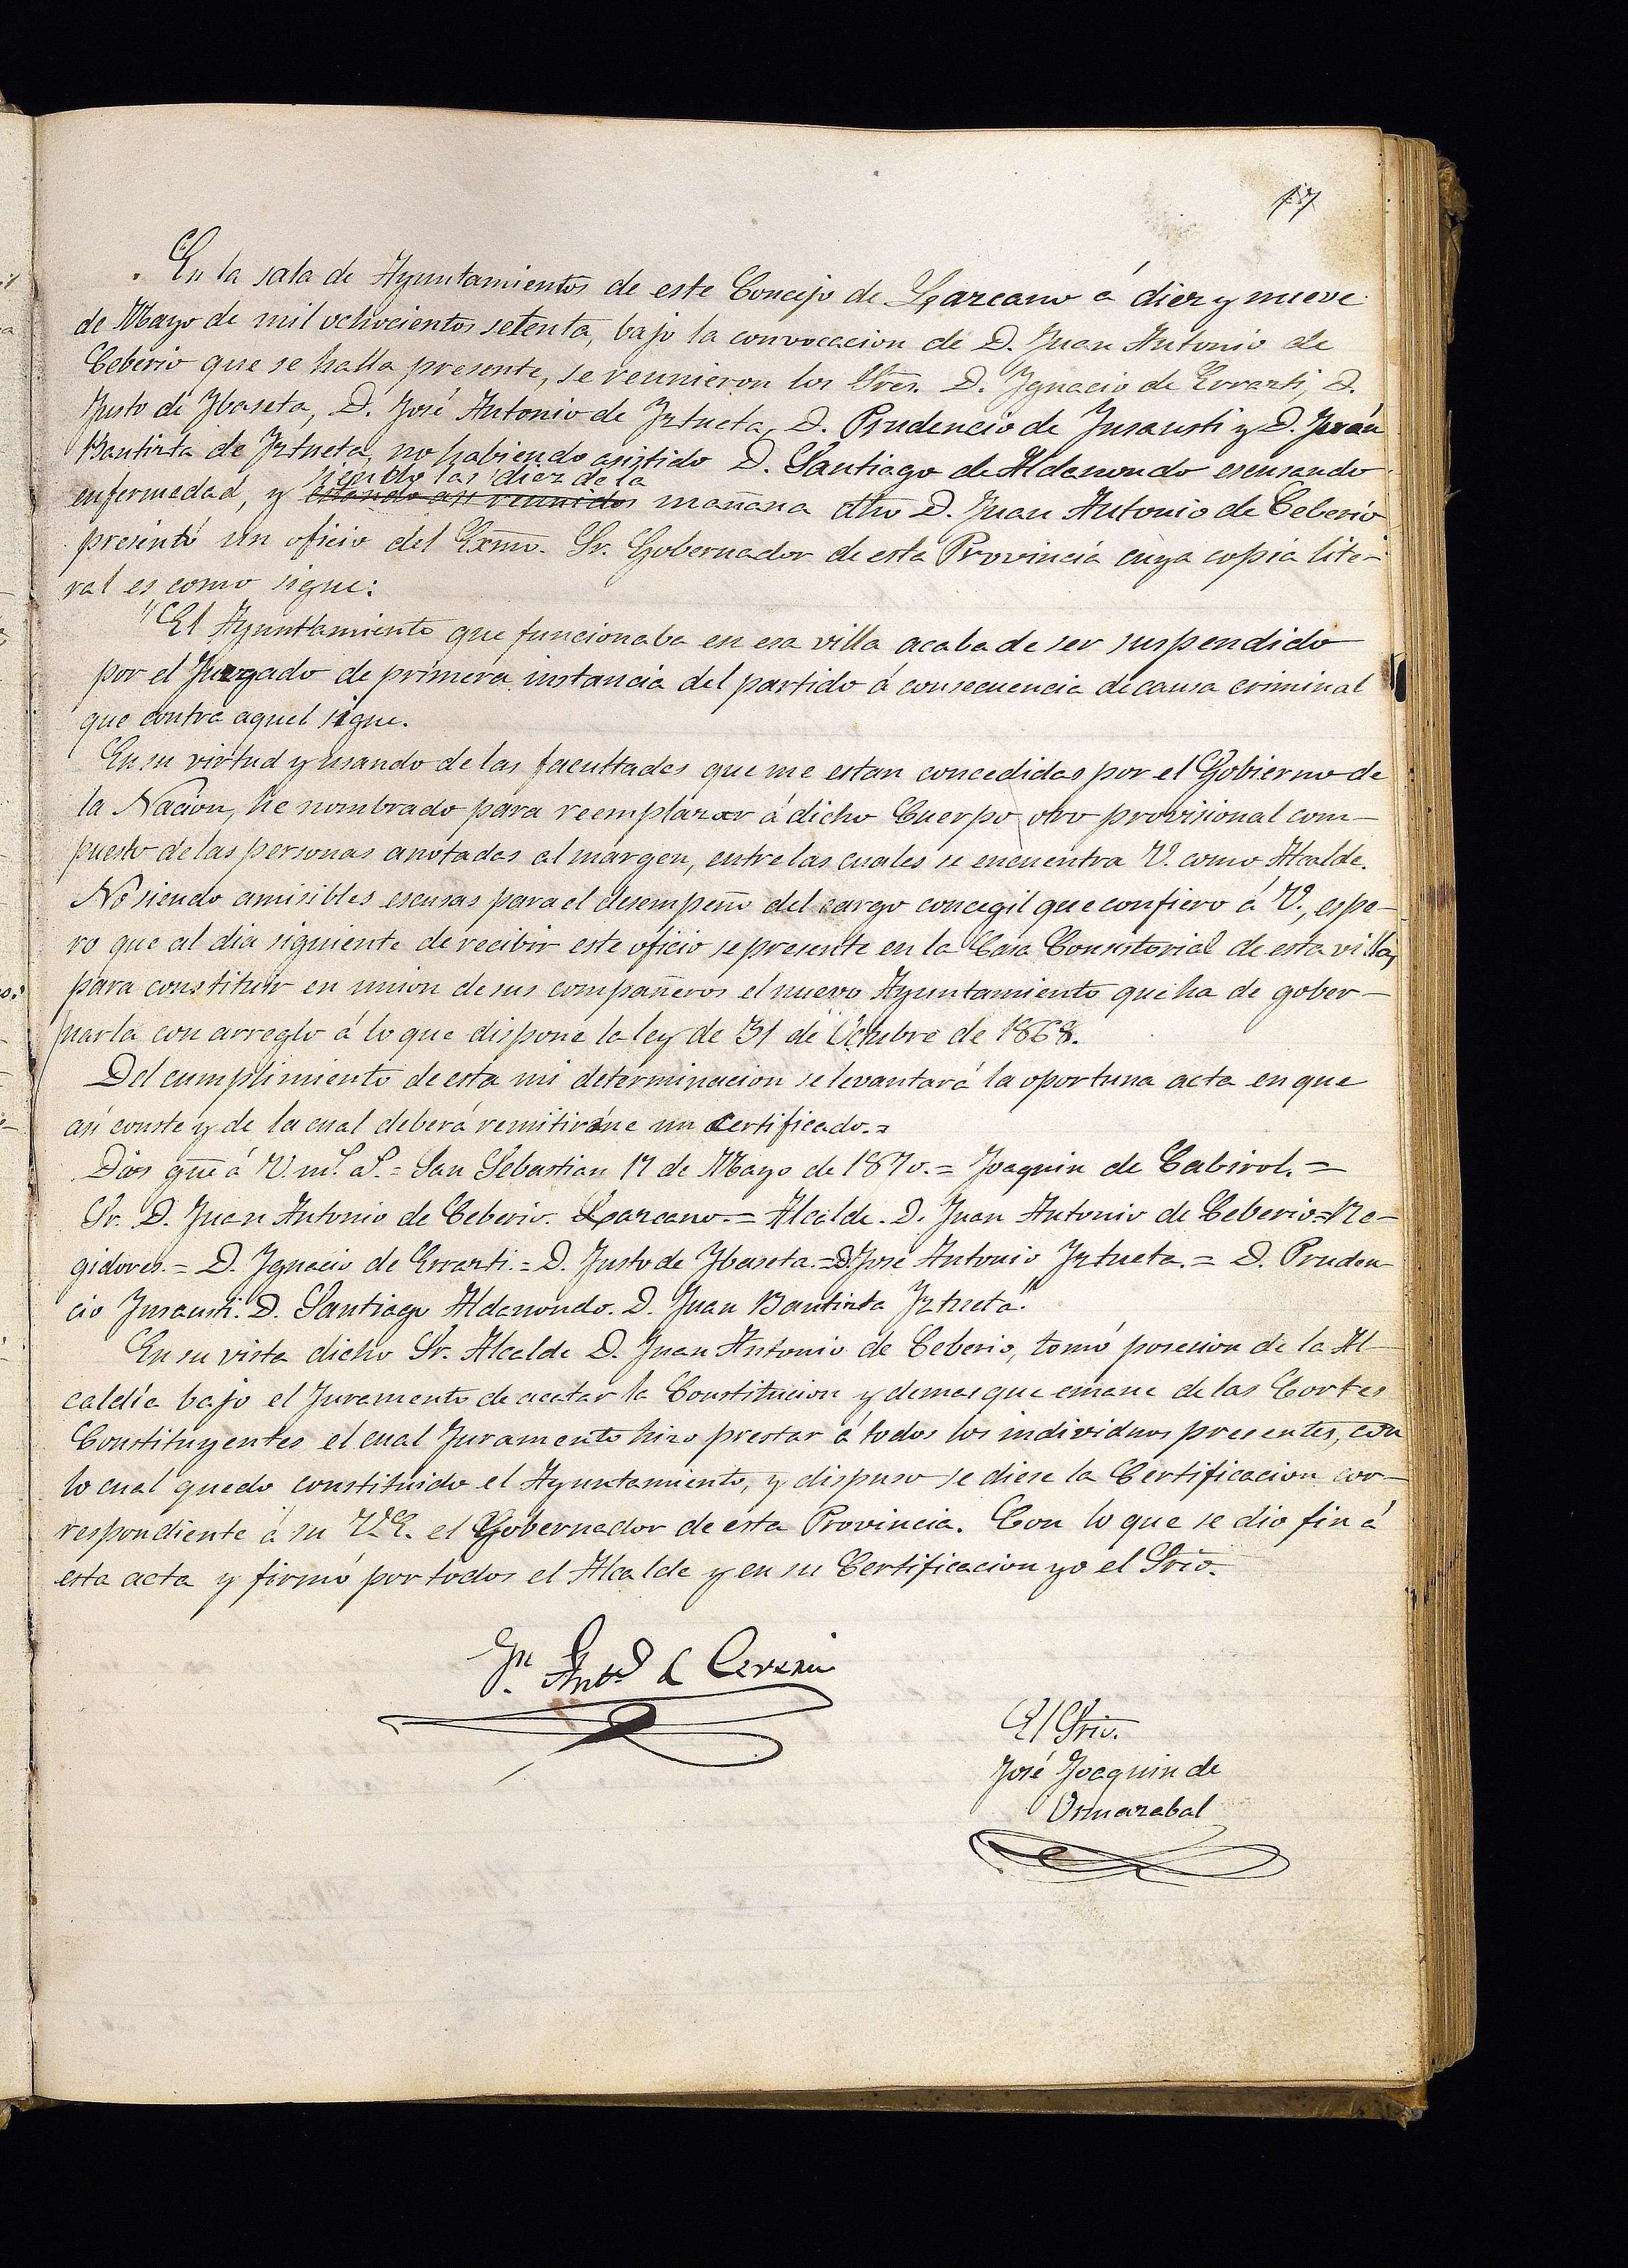 17
En la sala de Ayuntamientos de este Concejo de Lazcano á diez y nueve
de Mayo de mil ochocientos setenta, bajo la convocacion de D. Juan Antonio de
Ceberio que se halla presente, se reunieron los Sres. D. Ygnacio de Errazti, D.
Justo de Ybaseta, D. José Antonio de Yztueta, D. Prudencio de Ynsausti y D. Juan
Bautista de Yztueta, no habiendo asistido D. Santiago de Aldanondo escusando
siendo las diez de la
enfermedad, y estando asi reunidos mañana dho D. Juan Antonio de Ceberio
presentó un oficio del Exmo. Sr. Gobernador de esta Provincia cuya copia lite-
ral es como sigue:
"El Ayuntamiento que funcionaba en esa villa acaba de ser suspendido
por el Juzgado de primera instancia del partido á consecuencia de causa criminal
que contra aquel sigue.
En su virtud y usando de las facultades que me estan concedidas por el Gobierno de
la Nacion, he nombrado para reemplazar á dicho Cuerpo otro provisional com-
puesto de las personas anotadas al margen, entre las cuales se encuentra V. como Alcalde.
No siendo amisibles escusas para el desempeño del cargo concegil que confiero á V., espe-
ro que al dia siguiente de recibir este oficio se presente en la Casa Consistorial de esta villa,
para constituir en union de sus compañeros el nuevo Ayuntamiento que ha de gober-
narla con arreglo á lo que dispone la ley de 31 de Octubre de 1868.
Del cumplimiento de esta mi determinacion se levantará la oportuna acta en que
asi conste y de la cual deberá remitirme un certificado.=
Dios gue á V. ms. as.= San Sebastian 17 de Mayo de 1870.= Joaquin de Cabirol.=
Sr. D. Juan Antonio de Ceberio. Lazcano.= Alcalde. D. Juan Antonio de Ceberio=Re-
gidores.= D. Ygnacio de Errazti.= D. Justo de Ybaseta.=D. José Antonio Yztueta.= D. Pruden-
cio Ynsausti. D. Santiago Aldanondo. D. Juan Bautista Yztueta."
En su vista dicho Sr. Alcalde D. Juan Antonio de Ceberio, tomó posesion de la Al-
caldía bajo el Juramento de acatar la Constitucion y demas que emane de las Cortes
Constituyentes el cual Juramento hizo prestar á todos los individuos presentes, con
lo cual quedo constituido el Ayuntamiento, y dispuso se diese la Certificacion cor-
respondiente á su V.E. el Gobernador de esta Provincia. Con lo que se dio fin á
esta acta y firmó por todos el Alcalde y en su Certificacion yo el Srio.
Jn Anto de
El Srio.
José Joaquin de
Urmazabal